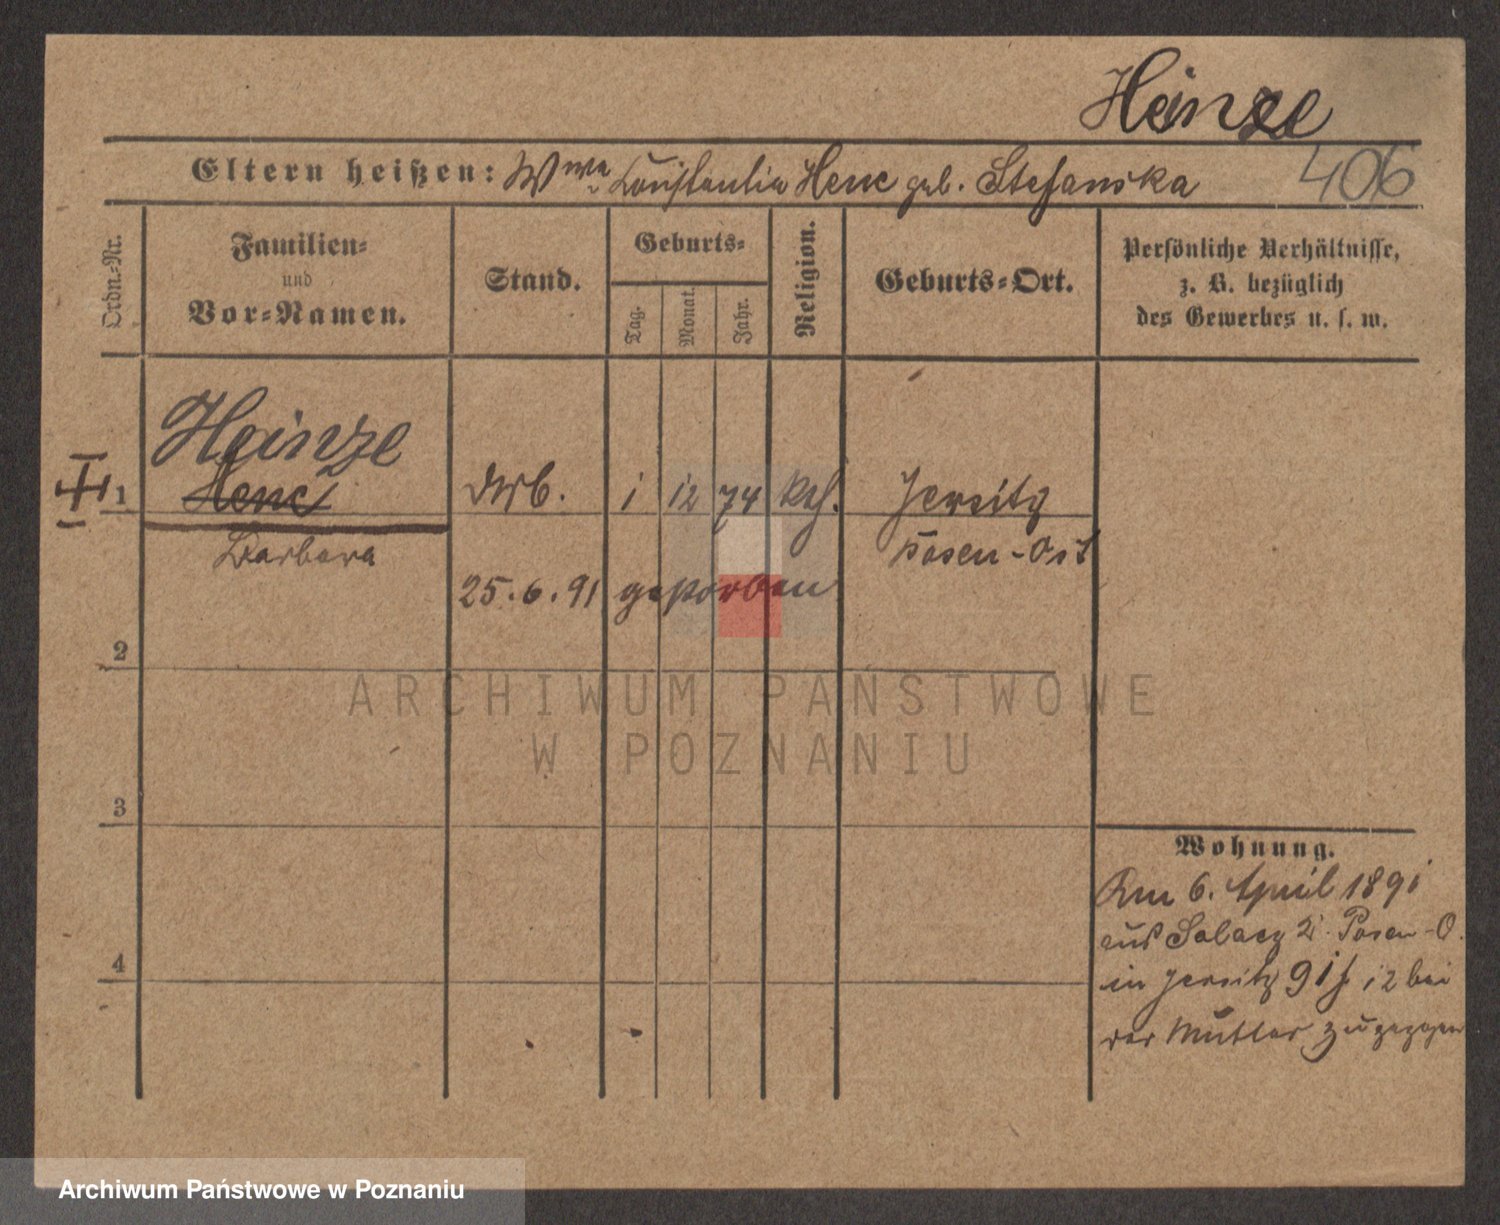 Heinze
Eltern heißen: Wwe Konstantia Henc geb. Stefanska
406
Ordn.-Nr.
Familien-
und
Vor-Namen.
Stand.
Geburts-
Tag.
Monat.
Jahr.
Religion.
Geburts-Ort.
Persönliche Verhältnisse,
z. B. bezüglich
des Gewerbes u. s. w.
Heinze
1 Henc Arb. 1 12 74 kth. Jersitz
Barbara Posen-Ost
25.6.91 gestorben
2
ARCHIWUM PAŃSTWOWE
W POZNANIU
3
Wohnung.
Am 6. April 1891
aus Solacz Posen-O.
in Jersitz 91 12 bei
der Mutter zugezogen
4
Archiwum Państwowe w Poznaniu